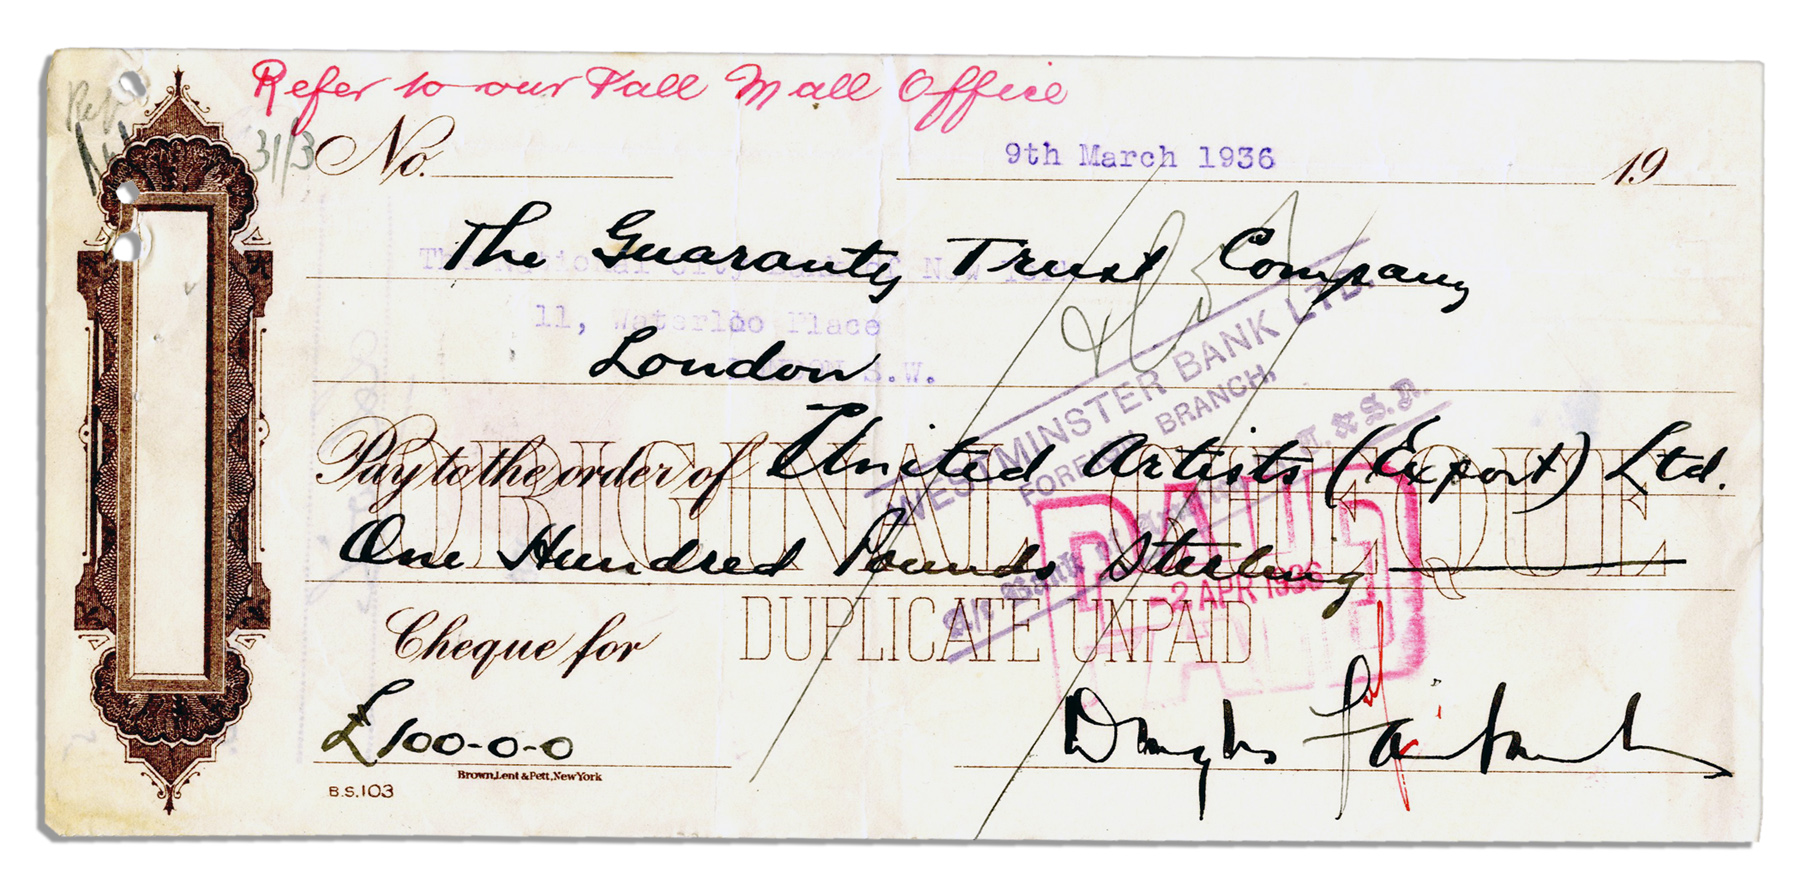 Refer to our Pall Mall Office
31/3
No.
9th March 1936 19
The Guaranty Trust Company
The National City Bank of New York
11, Waterloo Place
London
LONDON S.W.
WESTMINSTER BANK LTD.
FOREIGN BRANCH,
Pay to the order of United Artists (Export) Ltd.
ORIGINAL CHEQUE
One Hundred Pounds Sterling
PAID
2 APR 1936
PAID
Cheque for
DUPLICATE UNPAID
£100-0-0
Douglas Fairbanks
Brown, Lent & Pett, New York
B.S.103